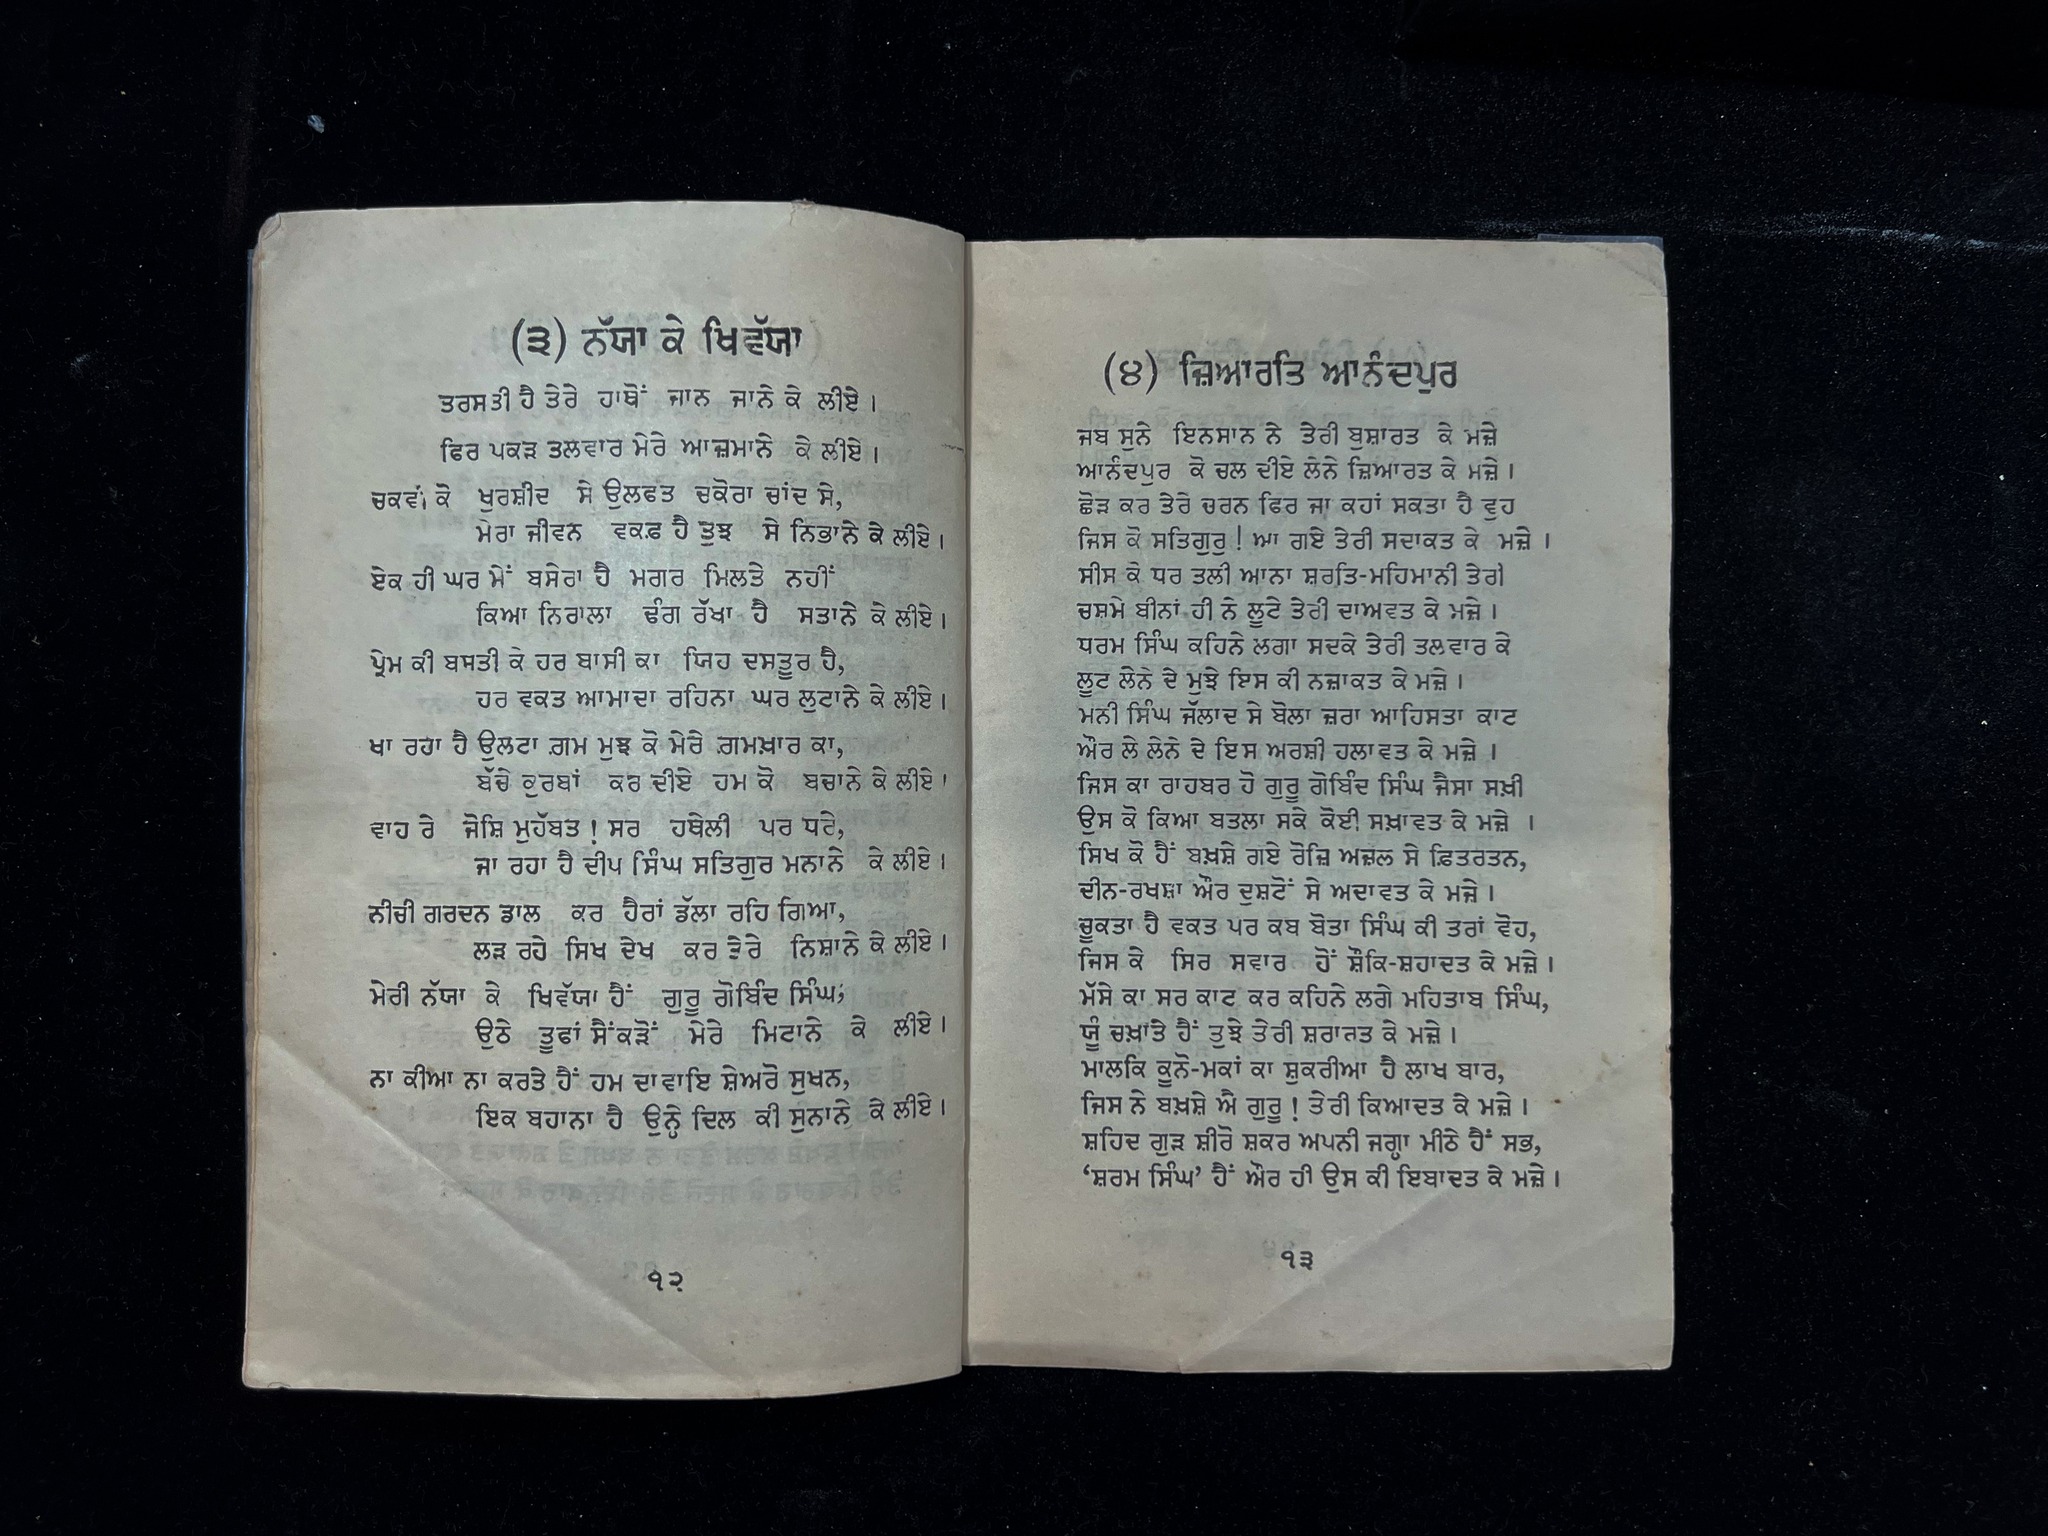 (੩) ਨੱਯਾ ਕੇ ਖਿਵੱਯਾ
ਤਰਸਤੀ ਹੈ ਤੇਰੇ ਹਾਥੋਂ ਜਾਨ ਜਾਨੇ ਕੇ ਲੀਏ ।
ਫਿਰ ਪਕੜ ਤਲਵਾਰ ਮੇਰੇ ਆਜ਼ਮਾਨੇ ਕੇ ਲੀਏ ।
ਚਕਵੀ ਕੋ ਖੁਰਸ਼ੀਦ ਸੇ ਉਲਫਤ ਚਕੋਰਾ ਚਾਂਦ ਸੇ,
ਮੇਰਾ ਜੀਵਨ ਵਕਫ਼ ਹੈ ਤੁਝ ਸੇ ਨਿਭਾਨੇ ਕੇ ਲੀਏ ।
ਏਕ ਹੀ ਘਰ ਮੇਂ ਬਸੇਰਾ ਹੈ ਮਗਰ ਮਿਲਤੇ ਨਹੀਂ
ਕਿਆ ਨਿਰਾਲਾ ਢੰਗ ਰੱਖਾ ਹੈ ਸਤਾਨੇ ਕੇ ਲੀਏ ।
ਪ੍ਰੇਮ ਕੀ ਬਸਤੀ ਕੇ ਹਰ ਬਾਸੀ ਕਾ ਯਿਹ ਦਸਤੂਰ ਹੈ,
ਹਰ ਵਕਤ ਆਮਾਦਾ ਰਹਿਨਾ ਘਰ ਲੁਟਾਨੇ ਕੇ ਲੀਏ ।
ਖਾ ਰਹਾ ਹੈ ਉਲਟਾ ਗ਼ਮ ਮੁਝ ਕੋ ਮੇਰੇ ਗ਼ਮਖ਼ਾਰ ਕਾ,
ਬੱਚੇ ਕੁਰਬਾਂ ਕਰ ਦੀਏ ਹਮ ਕੋ ਬਚਾਨੇ ਕੇ ਲੀਏ ।
ਵਾਹ ਰੇ ਜੋਸ਼ਿ ਮੁਹੱਬਤ ! ਸਰ ਹਥੇਲੀ ਪਰ ਧਰੇ,
ਜਾ ਰਹਾ ਹੈ ਦੀਪ ਸਿੰਘ ਸਤਿਗੁਰ ਮਨਾਨੇ ਕੇ ਲੀਏ ।
ਨੀਚੀ ਗਰਦਨ ਡਾਲ ਕਰ ਹੈਰਾਂ ਡੱਲਾ ਰਹਿ ਗਿਆ,
ਲੜ ਰਹੇ ਸਿਖ ਦੇਖ ਕਰ ਤੇਰੇ ਨਿਸ਼ਾਨੇ ਕੇ ਲੀਏ ।
ਮੇਰੀ ਨੱਯਾ ਕੇ ਖਿਵੱਯਾ ਹੈਂ ਗੁਰੂ ਗੋਬਿੰਦ ਸਿੰਘ;
ਉਠੇ ਤੂਫਾਂ ਸੈਂਕੜੋਂ ਮੇਰੇ ਮਿਟਾਨੇ ਕੇ ਲੀਏ ।
ਨਾ ਕੀਆ ਨਾ ਕਰਤੇ ਹੈਂ ਹਮ ਦਾਵਾਇ ਸ਼ੇਅਰੋ ਸੁਖਨ,
ਇਕ ਬਹਾਨਾ ਹੈ ਉਨ੍ਹੇ ਦਿਲ ਕੀ ਸੁਨਾਨੇ ਕੇ ਲੀਏ ।
੧੨
(੪) ਜ਼ਿਆਰਤਿ ਆਨੰਦਪੁਰ
ਜਬ ਸੁਨੇ ਇਨਸਾਨ ਨੇ ਤੇਰੀ ਬੁਸ਼ਾਰਤ ਕੇ ਮਜ਼ੇ
ਆਨੰਦਪੁਰ ਕੋ ਚਲ ਦੀਏ ਲੇਨੇ ਜ਼ਿਆਰਤ ਕੇ ਮਜ਼ੇ ।
ਛੋੜ ਕਰ ਤੇਰੇ ਚਰਨ ਫਿਰ ਜਾ ਕਹਾਂ ਸਕਤਾ ਹੈ ਵੁਹ
ਜਿਸ ਕੋ ਸਤਿਗੁਰੁ ! ਆ ਗਏ ਤੇਰੀ ਸਦਾਕਤ ਕੇ ਮਜ਼ੇ ।
ਸੀਸ ਕੋ ਧਰ ਤਲੀ ਆਨਾ ਸ਼ਰਤਿ-ਮਹਿਮਾਨੀ ਤੇਰੀ
ਚਸ਼ਮੇ ਬੀਨਾਂ ਹੀ ਨੇ ਲੂਟੇ ਤੇਰੀ ਦਾਅਵਤ ਕੇ ਮਜ਼ੇ ।
ਧਰਮ ਸਿੰਘ ਕਹਿਨੇ ਲਗਾ ਸਦਕੇ ਤੇਰੀ ਤਲਵਾਰ ਕੇ
ਲੂਟ ਲੇਨੇ ਦੇ ਮੁਝੇ ਇਸ ਕੀ ਨਜ਼ਾਕਤ ਕੇ ਮਜ਼ੇ ।
ਮਨੀ ਸਿੰਘ ਜੱਲਾਦ ਸੇ ਬੋਲਾ ਜ਼ਰਾ ਆਹਿਸਤਾ ਕਾਟ
ਔਰ ਲੇ ਲੇਨੇ ਦੇ ਇਸ ਅਰਸ਼ੀ ਹਲਾਵਤ ਕੇ ਮਜ਼ੇ ।
ਜਿਸ ਕਾ ਰਾਹਬਰ ਹੋ ਗੁਰੂ ਗੋਬਿੰਦ ਸਿੰਘ ਜੈਸਾ ਸਖ਼ੀ
ਉਸ ਕੋ ਕਿਆ ਬਤਲਾ ਸਕੇ ਕੋਈ ਸਖ਼ਾਵਤ ਕੇ ਮਜ਼ੇ ।
ਸਿਖ ਕੋ ਹੈਂ ਬਖ਼ਸ਼ੇ ਗਏ ਰੋਜ਼ਿ ਅਜ਼ਲ ਸੇ ਫ਼ਿਤਰਤਨ,
ਦੀਨ-ਰਖਸ਼ਾ ਔਰ ਦੁਸ਼ਟੋਂ ਸੇ ਅਦਾਵਤ ਕੇ ਮਜ਼ੇ ।
ਚੂਕਤਾ ਹੈ ਵਕਤ ਪਰ ਕਬ ਬੋਤਾ ਸਿੰਘ ਕੀ ਤਰਾਂ ਵੋਹ,
ਜਿਸ ਕੇ ਸਿਰ ਸਵਾਰ ਹੋਂ ਸ਼ੌਕਿ-ਸ਼ਹਾਦਤ ਕੇ ਮਜ਼ੇ ।
ਮੱਸੇ ਕਾ ਸਰ ਕਾਟ ਕਰ ਕਹਿਨੇ ਲਗੇ ਮਹਿਤਾਬ ਸਿੰਘ,
ਯੂੰ ਚਖ਼ਾਤੇ ਹੈਂ ਤੁਝੇ ਤੇਰੀ ਸ਼ਰਾਰਤ ਕੇ ਮਜ਼ੇ ।
ਮਾਲਕਿ ਕੂਨੋ-ਮਕਾਂ ਕਾ ਸ਼ੁਕਰੀਆ ਹੈ ਲਾਖ ਬਾਰ,
ਜਿਸ ਨੇ ਬਖ਼ਸ਼ੇ ਐ ਗੁਰੂ ! ਤੇਰੀ ਕਿਆਦਤ ਕੇ ਮਜ਼ੇ ।
ਸ਼ਹਿਦ ਗੁੜ ਸ਼ੀਰੋ ਸ਼ਕਰ ਅਪਨੀ ਜਗ੍ਹਾ ਮੀਠੇ ਹੈਂ ਸਭ,
‘ਸ਼ਰਮ ਸਿੰਘ’ ਹੈਂ ਔਰ ਹੀ ਉਸ ਕੀ ਇਬਾਦਤ ਕੇ ਮਜ਼ੇ ।
੧੩